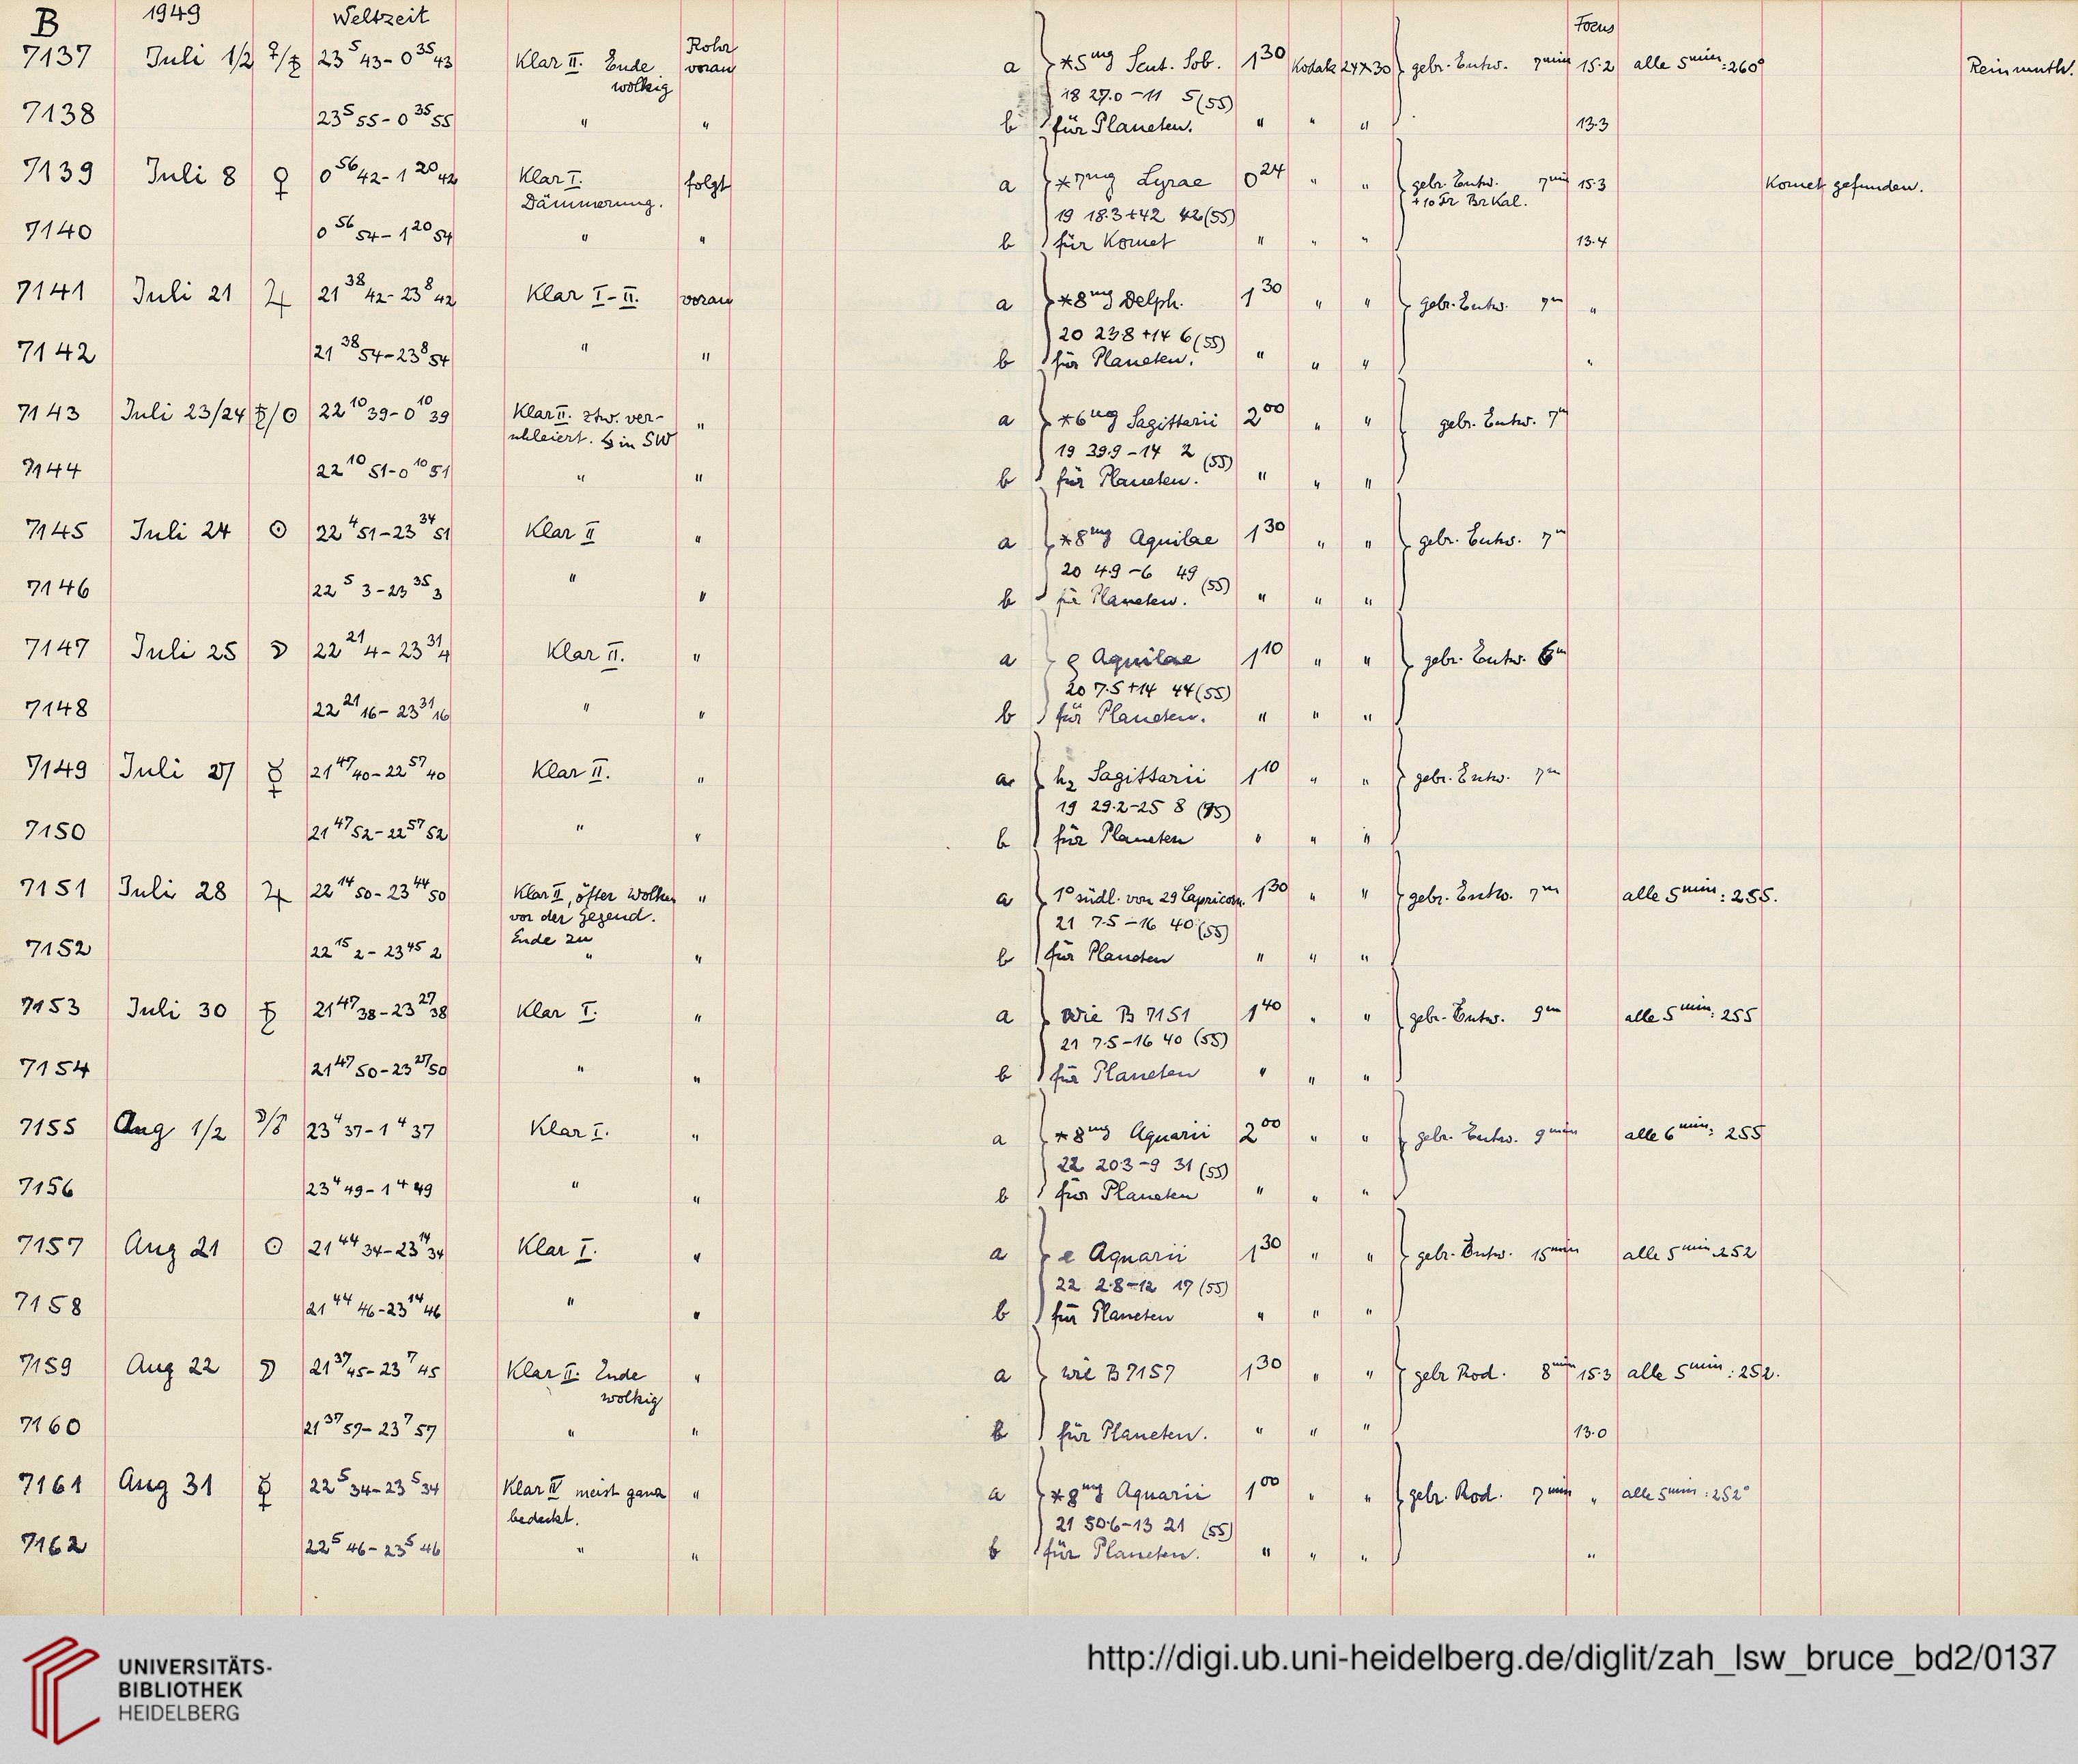 B 1949 Weltzeit Focus
7137 Juli 1/2 ♀/♄ 23 5 43 - 0 35 43 Klar II. Ende wolkig Rohr voran a *5mg Scut. Sob. 1 30 Kodak 24×30 gebr. Entw. 7min 15.2 alle 5min: 260° Reinmuth.
18 27.0 -11 5 (55)
7138 23 5 55 - 0 35 55 " " b für Planeten. " " " 13.3
7139 Juli 8 ♀ 0 56 42 - 1 20 42 Klar I. Dämmerung. folgt a *7mg Lyrae 0 24 " " gebr. Entw. 7min 15.3 Komet gefunden.
+10 Tr BrKal.
19 18.3 +42 42 (55)
7140 0 56 54 - 1 20 54 " " b für Komet " " " 13.4
7141 Juli 21 ♃ 21 38 42 - 23 8 42 Klar I-II. voran a *8mg Delph. 1 30 " " gebr. Entw. 7m "
20 23.8 +14 6 (55)
7142 21 38 54 - 23 8 54 " " b für Planeten. " " " "
7143 Juli 23/24 ♄/☉ 22 10 39 - 0 10 39 Klar II. ztw. ver-
schleiert. ↯ in SW " a *6mg Sagittarii 2 00 " " gebr. Entw. 7m
19 39.9 -14 2 (55)
7144 22 10 51 - 0 10 51 " " b für Planeten. " " "
7145 Juli 24 ☉ 22 4 51 - 23 34 51 Klar II " a *8mg Aquilae 1 30 " " gebr. Entw. 7m
20 4.9 -6 49 (55)
7146 22 5 3 - 23 35 3 " " b für Planeten. " " "
7147 Juli 25 ☽ 22 21 4 - 23 31 4 Klar II. " a ϱ Aquilae 1 10 " " gebr. Entw. 6m
20 7.5 +14 44 (55)
7148 22 21 16 - 23 31 16 " " b für Planeten. " " "
7149 Juli 27 ☿ 21 47 40 - 22 57 40 Klar II. " a h2 Sagittarii 1 10 " " gebr. Entw. 7m
19 29.2 -25 8 (75)
7150 21 47 52 - 22 57 52 " " b für Planeten " " "
7151 Juli 28 ♃ 22 14 50 - 23 44 50 Klar II, öfter Wolken " a 1° südl. von 29 Capricorn. 1 30 " " gebr. Entw. 7m alle 5min: 255.
vor der Gegend. 21 7.5 -16 40 (55)
Ende zu
7152 22 15 2 - 23 45 2 " " b für Planeten " " "
7153 Juli 30 ♄ 21 47 38 - 23 27 38 Klar I. " a wie B 7151 1 40 " " gebr. Entw. 9m alle 5min: 255
21 7.5 -16 40 (55)
7154 21 47 50 - 23 27 50 " " b für Planeten " " "
7155 Aug 1/2 ☽/♂ 23 4 37 - 1 4 37 Klar I. " a *8mg Aquarii 2 00 " " gebr. Entw. 9min alle 6min: 255
22 20.3 -9 31 (55)
7156 23 4 49 - 1 4 49 " " b für Planeten " " "
7157 Aug 21 ☉ 21 44 34 - 23 14 34 Klar I. " a e Aquarii 1 30 " " gebr. Entw. 15min alle 5min 252
22 2.8 -12 17 (55)
7158 21 44 46 - 23 14 46 " " b für Planeten " " "
7159 Aug 22 ☽ 21 37 45 - 23 7 45 Klar II. Ende wolkig " a wie B 7157 1 30 " " gebr Rod. 8min 15.3 alle 5min: 252.
7160 21 37 57 - 23 7 57 " " b für Planeten. " " " 13.0
7161 Aug 31 ☿ 22 5 34 - 23 5 34 Klar IV meist ganz bedeckt. " a *8mg Aquarii 1 00 " " gebr. Rod. 7min " alle 5min: 252°
21 50.6 -13 21 (55)
7162 22 5 46 - 23 5 46 " " b für Planeten. " " " "
UNIVERSITÄTS-
BIBLIOTHEK
HEIDELBERG
http://digi.ub.uni-heidelberg.de/diglit/zah_lsw_bruce_bd2/0137